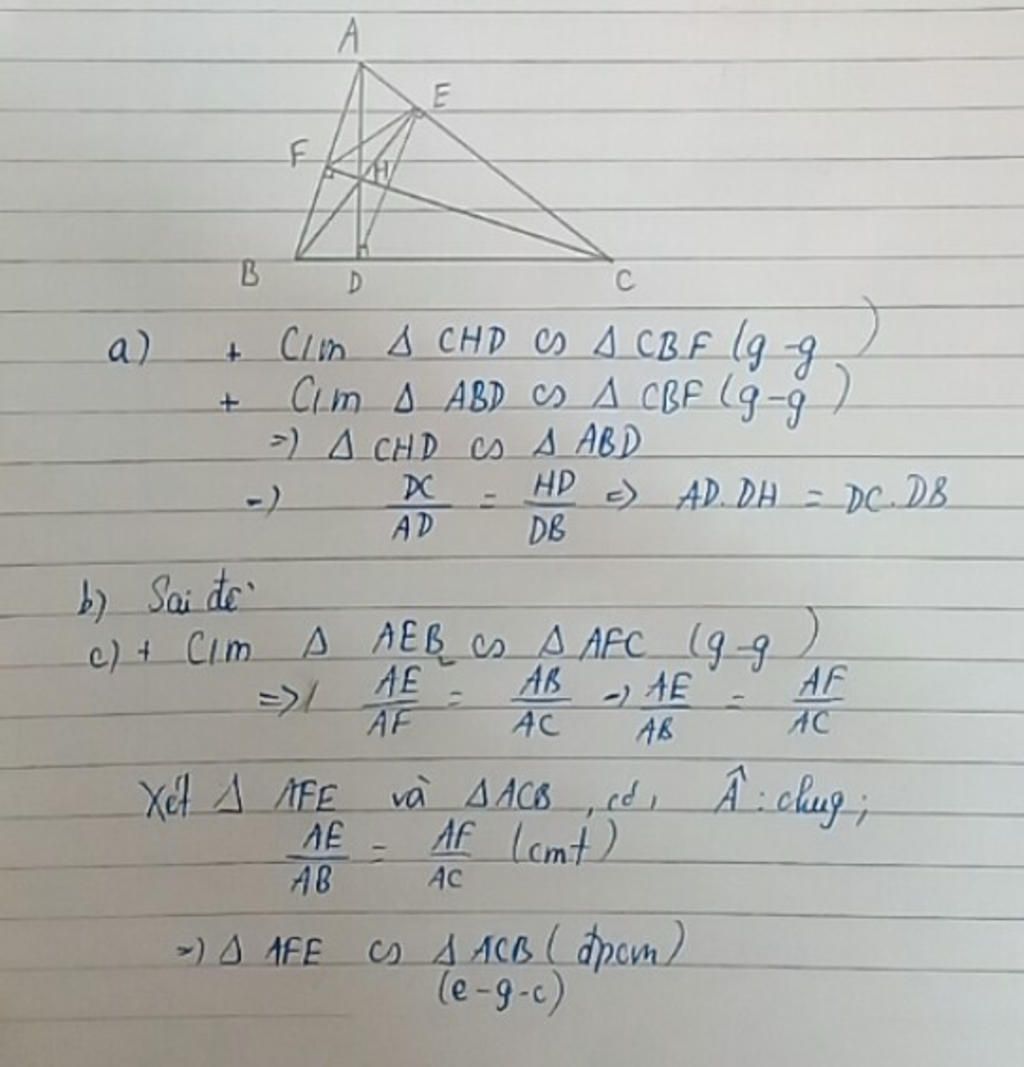 A
E
F
H
B
D
C
a) + C/m Δ CHD ∽ Δ CBF (g-g)
+ C/m Δ ABD ∽ Δ CBF (g-g)
=) Δ CHD ∽ Δ ABD
-) DC/AD = HD/DB => AD.DH = DC.DB
b) Sai đề
c) + C/m Δ AEB ∽ Δ AFC (g-g)
=> AE/AF = AB/AC -> AE/AB = AF/AC
Xét Δ AFE và Δ ACB, có, Â: chug;
AE/AB = AF/AC (cmt)
=) Δ AFE ∽ Δ ACB (đpcm)
(c-g-c)